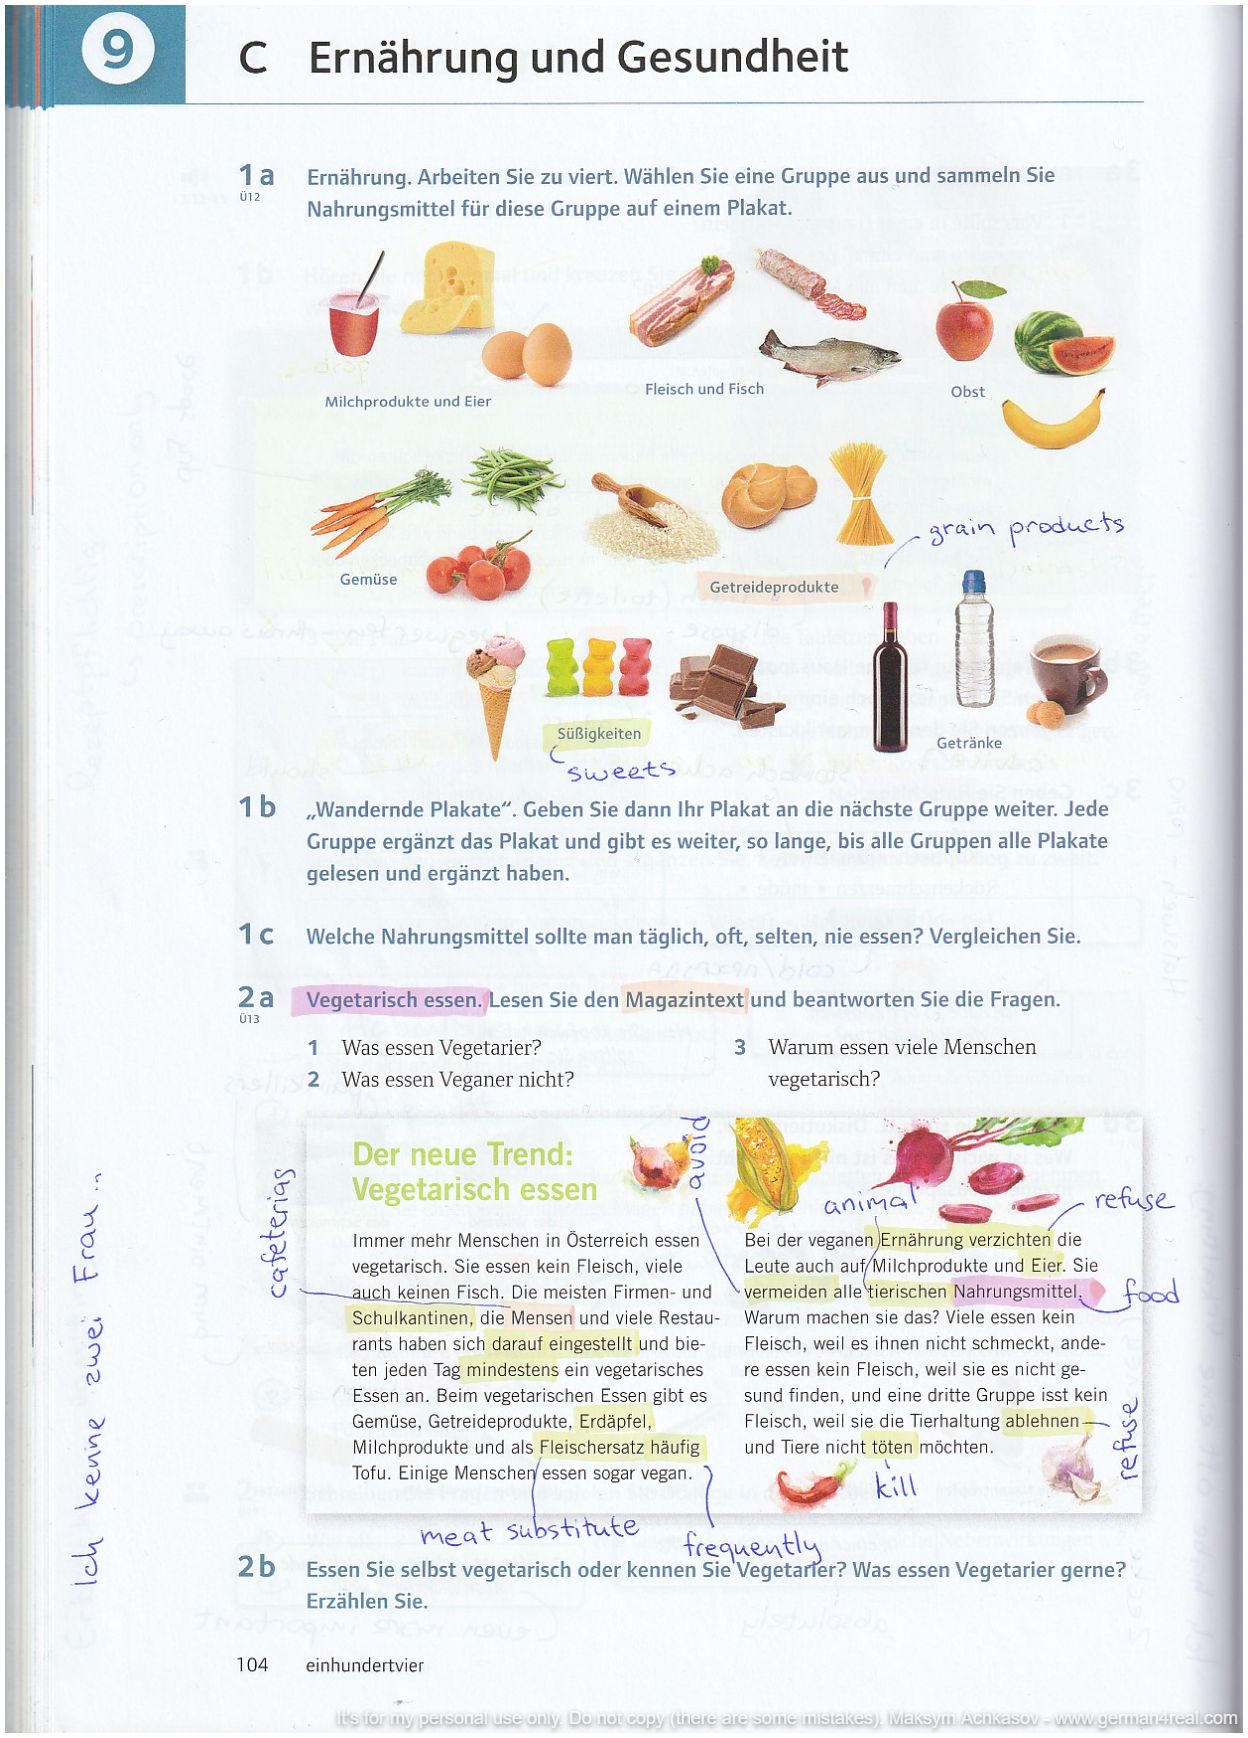 9
C Ernährung und Gesundheit
1a
Ü12
Ernährung. Arbeiten Sie zu viert. Wählen Sie eine Gruppe aus und sammeln Sie
Nahrungsmittel für diese Gruppe auf einem Plakat.
Milchprodukte und Eier
Fleisch und Fisch
Obst
grain products
Gemüse
Getreideprodukte
Süßigkeiten
Getränke
sweets
1b
„Wandernde Plakate“. Geben Sie dann Ihr Plakat an die nächste Gruppe weiter. Jede
Gruppe ergänzt das Plakat und gibt es weiter, so lange, bis alle Gruppen alle Plakate
gelesen und ergänzt haben.
1c
Welche Nahrungsmittel sollte man täglich, oft, selten, nie essen? Vergleichen Sie.
2a
Ü13
Vegetarisch essen. Lesen Sie den Magazintext und beantworten Sie die Fragen.
1 Was essen Vegetarier?
2 Was essen Veganer nicht?
3 Warum essen viele Menschen
vegetarisch?
Der neue Trend:
Vegetarisch essen
Immer mehr Menschen in Österreich essen
vegetarisch. Sie essen kein Fleisch, viele
auch keinen Fisch. Die meisten Firmen- und
Schulkantinen, die Mensen und viele Restau-
rants haben sich darauf eingestellt und bie-
ten jeden Tag mindestens ein vegetarisches
Essen an. Beim vegetarischen Essen gibt es
Gemüse, Getreideprodukte, Erdäpfel,
Milchprodukte und als Fleischersatz häufig
Tofu. Einige Menschen essen sogar vegan.
cafeterias
meat substitute
frequently
avoid
animal
refuse
Bei der veganen Ernährung verzichten die
Leute auch auf Milchprodukte und Eier. Sie
vermeiden alle tierischen Nahrungsmittel.
Warum machen sie das? Viele essen kein
Fleisch, weil es ihnen nicht schmeckt, ande-
re essen kein Fleisch, weil sie es nicht ge-
sund finden, und eine dritte Gruppe isst kein
Fleisch, weil sie die Tierhaltung ablehnen
und Tiere nicht töten möchten.
food
refuse
kill
Ich kenne zwei Frau..
2b
Essen Sie selbst vegetarisch oder kennen Sie Vegetarier? Was essen Vegetarier gerne?
Erzählen Sie.
104 einhundertvier
It's for my personal use only. Do not copy (there are some mistakes). Maksym Achkasov - www.german4real.com